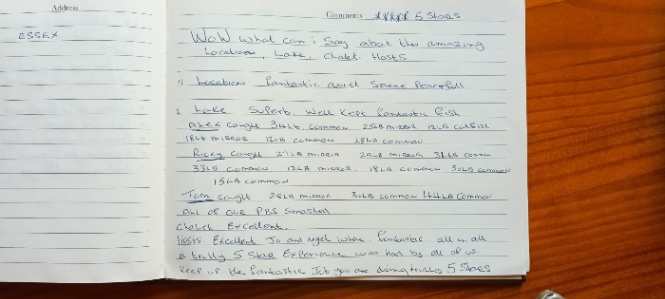 Address
ESSEX
Comments ***** 5 Stars
WoW what can i say about this amazing
Location, Lake, Chalet. Hosts
1) Location fantastic quiet Serene Peacefull
2 Lake Superb. Well Kept fantastic fish
caught 34lb common 25LB mirror 12LB Catfish
18LB mirror 12LB common 28LB common
Ricky caught 27LB mirror 24LB mirror 31LB common
33LB common 12LB mirror. 18LB common 30LB common
15LB common
Tom caught 28LB mirror 30LB common 44LB Common
All of our PBS Smashed
Chalet Excellent.
Hosts Excellent Jo and Nigel where fantastic all in all
a truly 5 Star Experience was had by all of us.
Keep up the fantastic Job you are doing truly 5 Stars